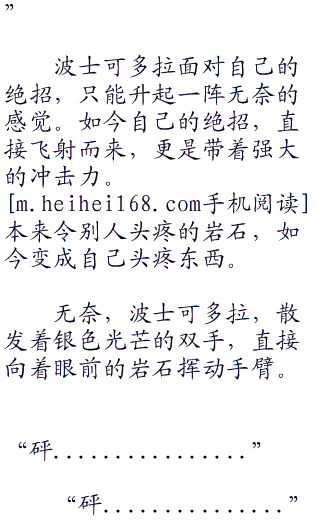 ”
波士可多拉面对自己的
绝招，只能升起一阵无奈的
感觉。如今自己的绝招，直
接飞射而来，更是带着强大
的冲击力。
[m.heihei168.com手机阅读]
本来令别人头疼的岩石，如
今变成自己头疼东西。
无奈，波士可多拉，散
发着银色光芒的双手，直接
向着眼前的岩石挥动手臂。
“砰................”
“砰...............”